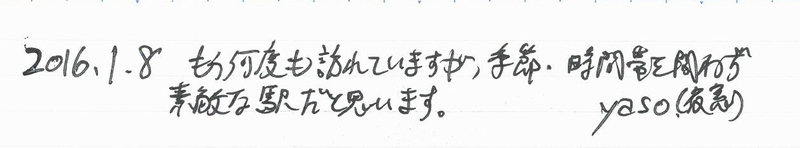 2016.1.8 もう何度も訪れていますが、季節・時間帯を問わず
素敵な駅だと思います。 yaso.